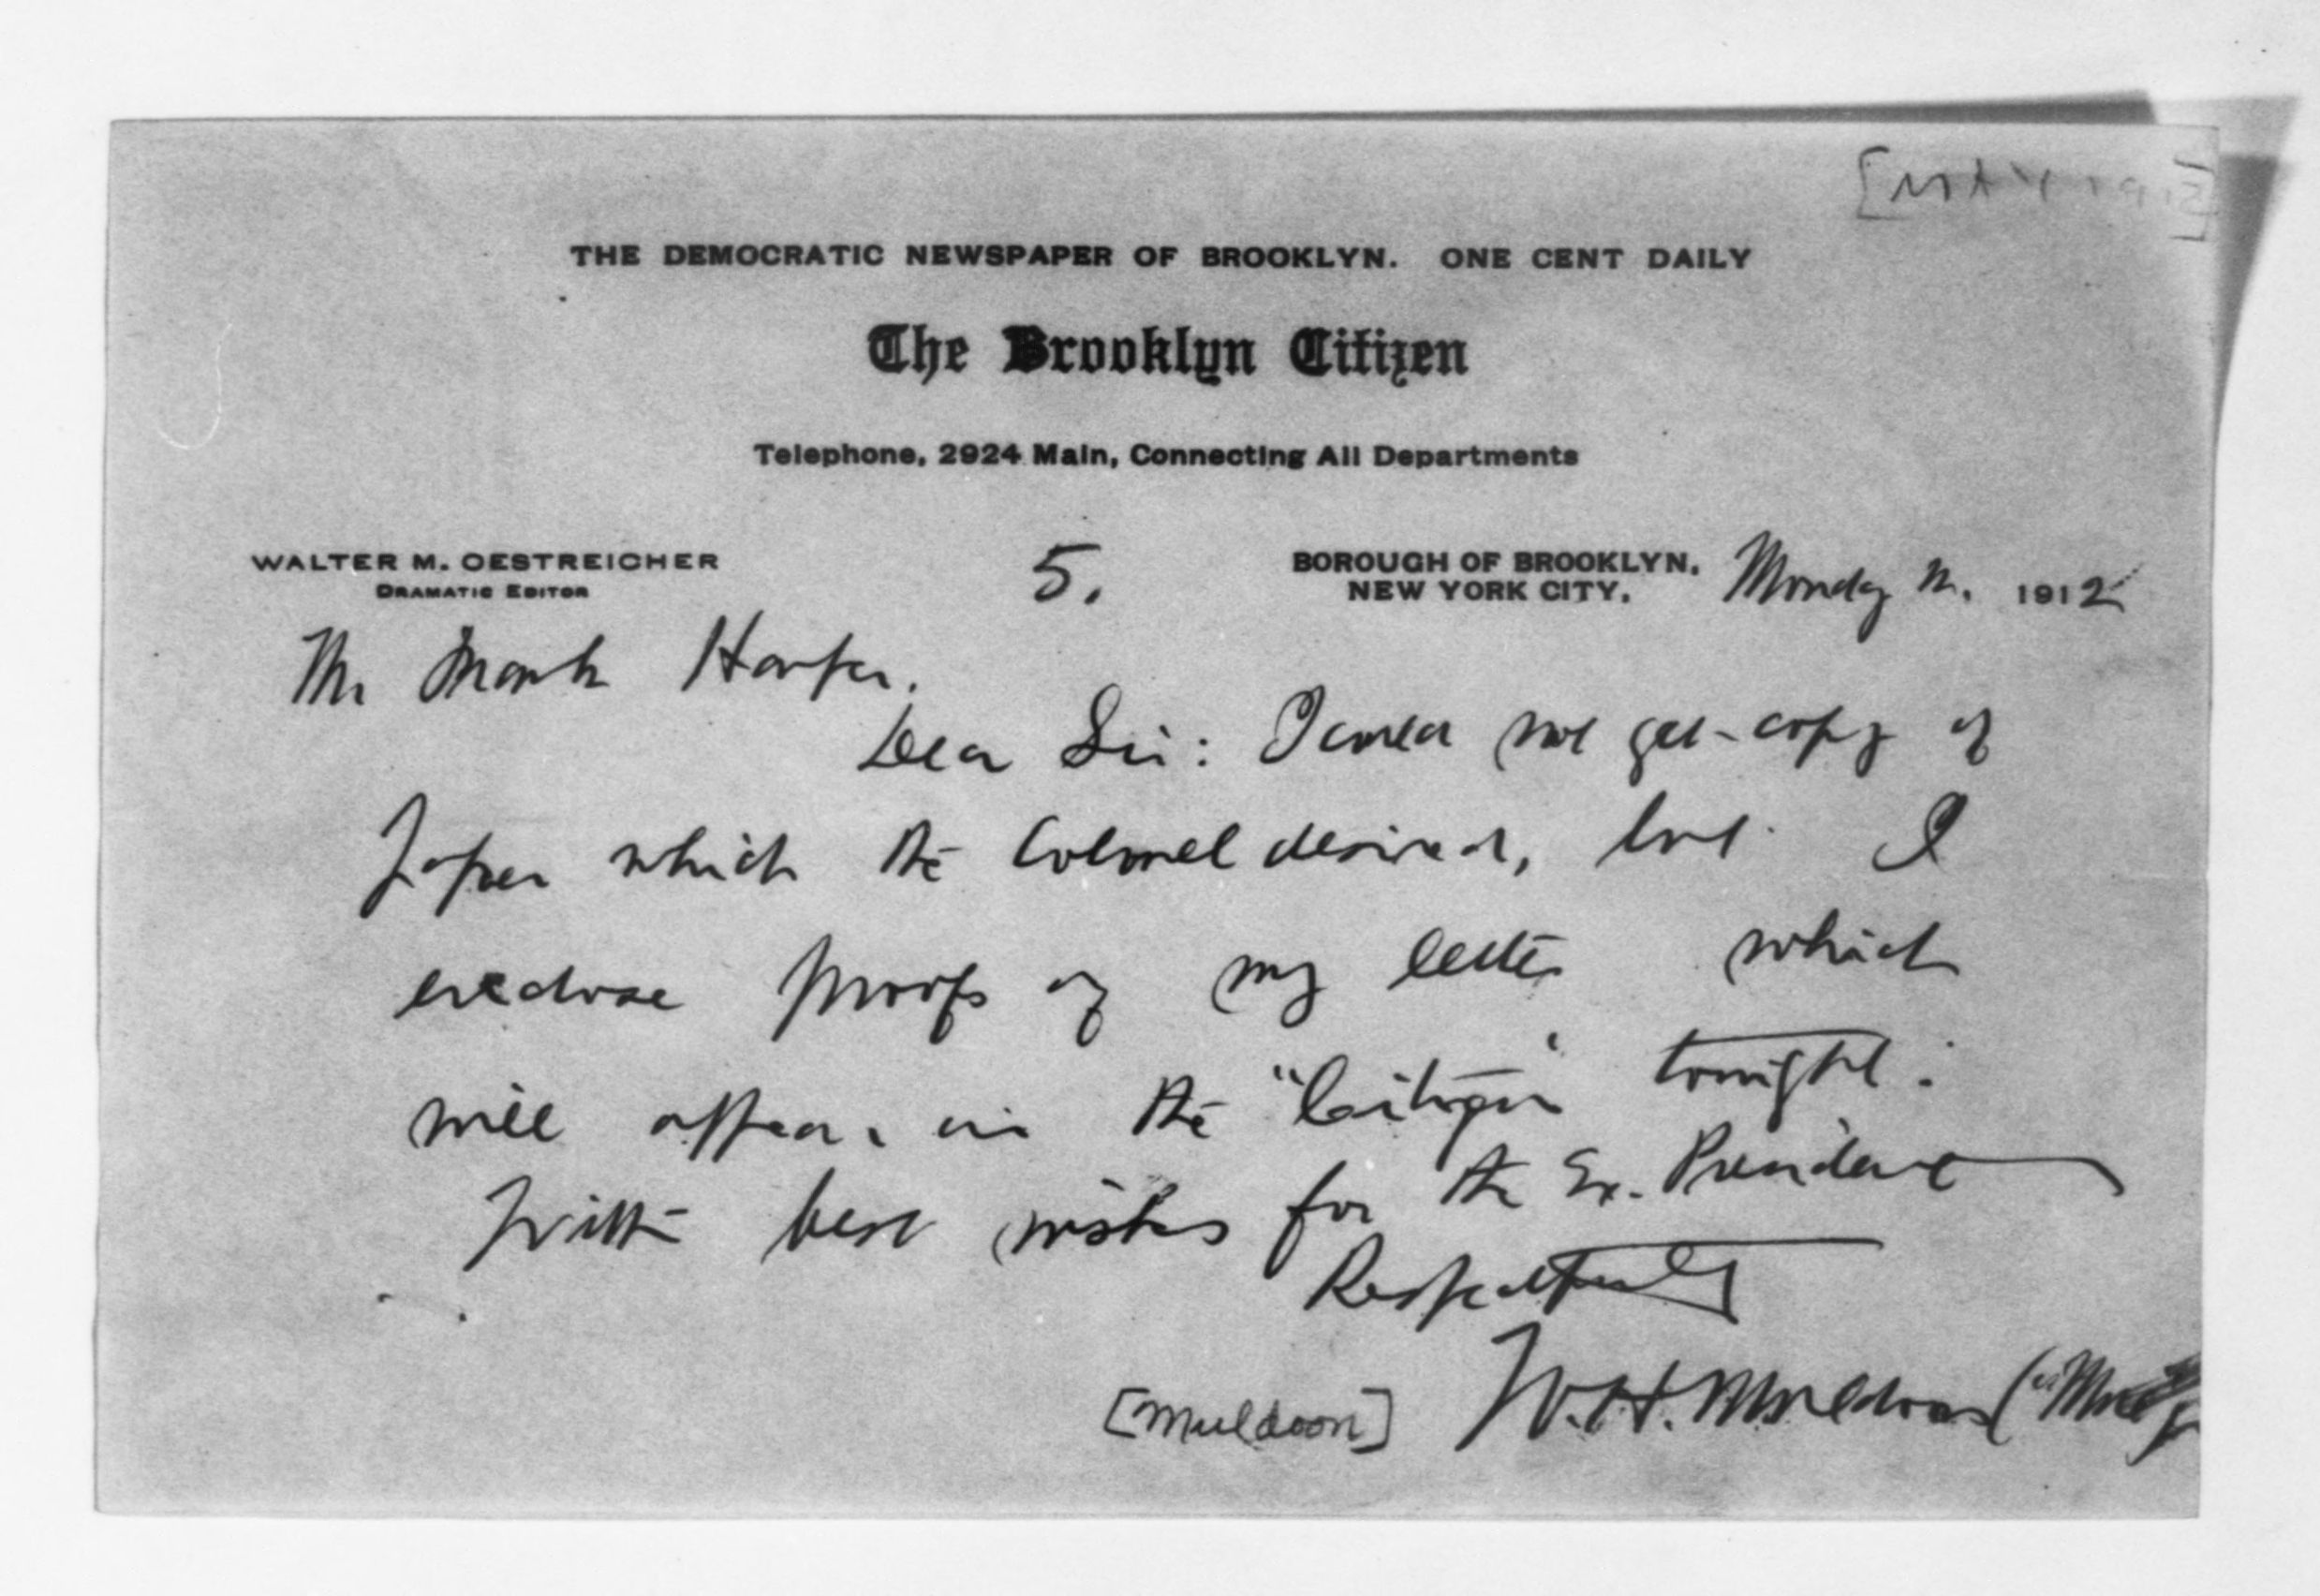 THE DEMOCRATIC NEWSPAPER OF BROOKLYN. ONE CENT DAILY
The Brooklyn Citizen
Telephone, 2924 Main, Connecting All Departments
WALTER M. OESTREICHER
DRAMATIC EDITOR
5.
BOROUGH OF BROOKLYN,
NEW YORK CITY,
Monday 1912
Mr Harper.
Dear Sir: I could not get copy of
paper which the Colonel desired, but I
enclose proofs of my letter which
will appear in the "Citizen" tonight.
With best wishes for the Ex. President
Respectfully
[Muldoon] W.H. Muldoon